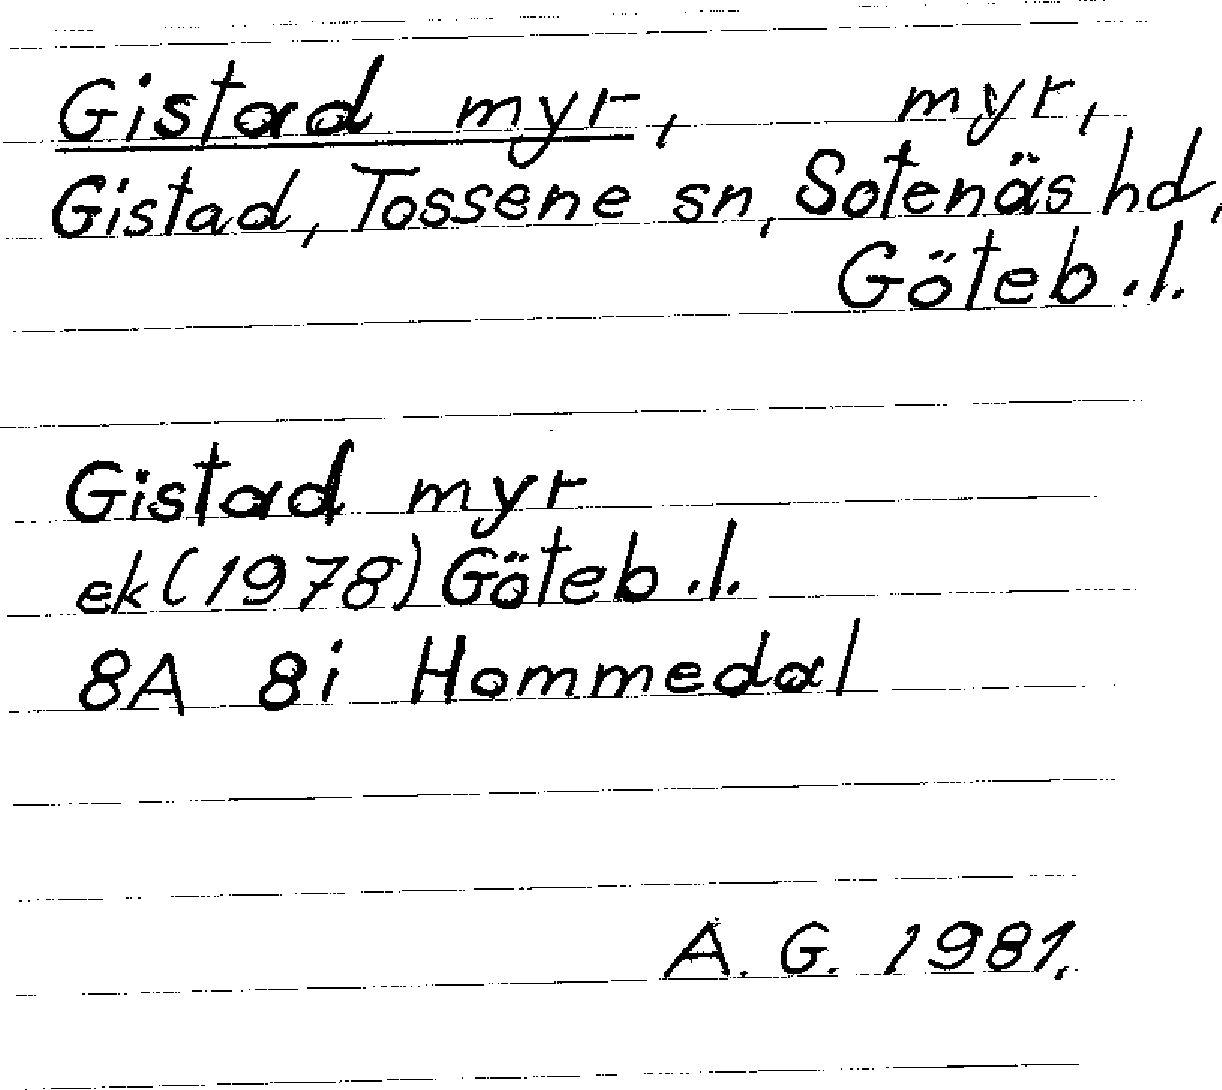 Gistad myr, myr,
Gistad, Tossene sn, Sotenäs hd,
Göteb.l.
Gistad myr
ek (1978) Göteb.l.
8A 8i Hommedal
A. G. 1981.